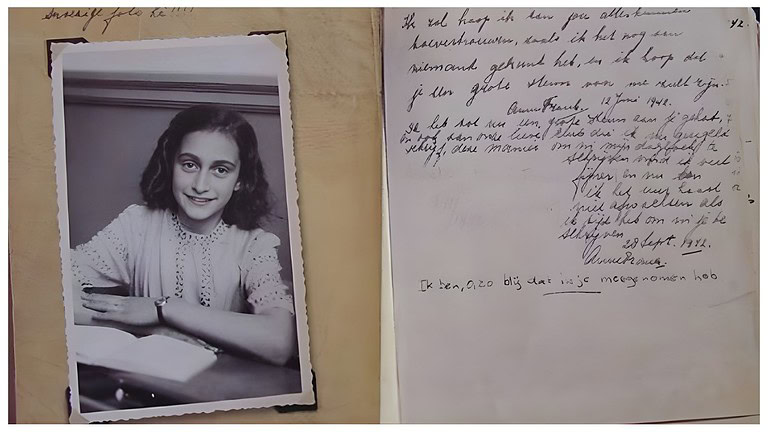 Ik zal hoop ik aan jou alles kunnen
toevertrouwen, zoals ik het nog aan
niemand gekund heb, en ik hoop dat
je een grote steun van me zult zijn.
Anne Frank. 12 Juni 1942.
Ik heb tot nu een grote steun aan je gehad,
en ook aan onze lieve club die ik nu geregeld
schrijf, deze manier om in mijn dagboek te
schrijven vind ik veel
fijner en nu kan
ik het uur haast
niet afwachten als
ik tijd heb om in je te
schrijven
28 Sept. 1942.
Anne Frank.
Ik ben, O, zo blij dat ik je meegenomen heb